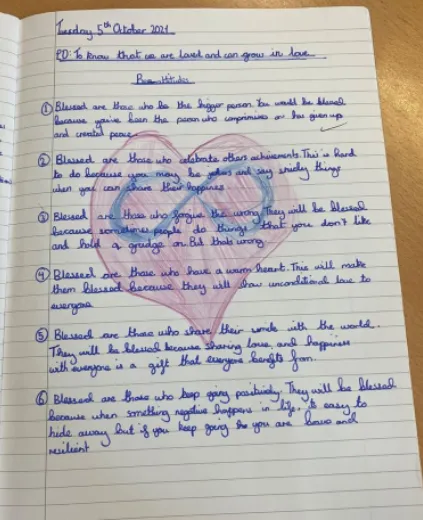 Tuesday 5th October 2021
LO: To know that we are loved and can grow in love.
Beatitudes
① Blessed are those who be the bigger person. You would be blessed
because you've been the person who comprimises or has given up
and created peace.
② Blessed are those who celebrate others achievements. This is hard
to do because you may be jealous and say unkind things
when you can share their happines.
③ Blessed are those who forgive the wrong. They will be blessed
because sometimes people do things that you don't like
and hold a grudge on. But thats wrong.
④ Blessed are those who have a warm heart. This will make
them blessed because they will show unconditional love to
everyone
⑤ Blessed are those who share their smile with the world.
They will be blessed because sharing love, and happiness
with everyone is a gift that everyone benefits from.
⑥ Blessed are those who keep going positively. They will be blessed
because when something negative happens in life, to easy to
hide away but if you keep going you are brave and
resilient